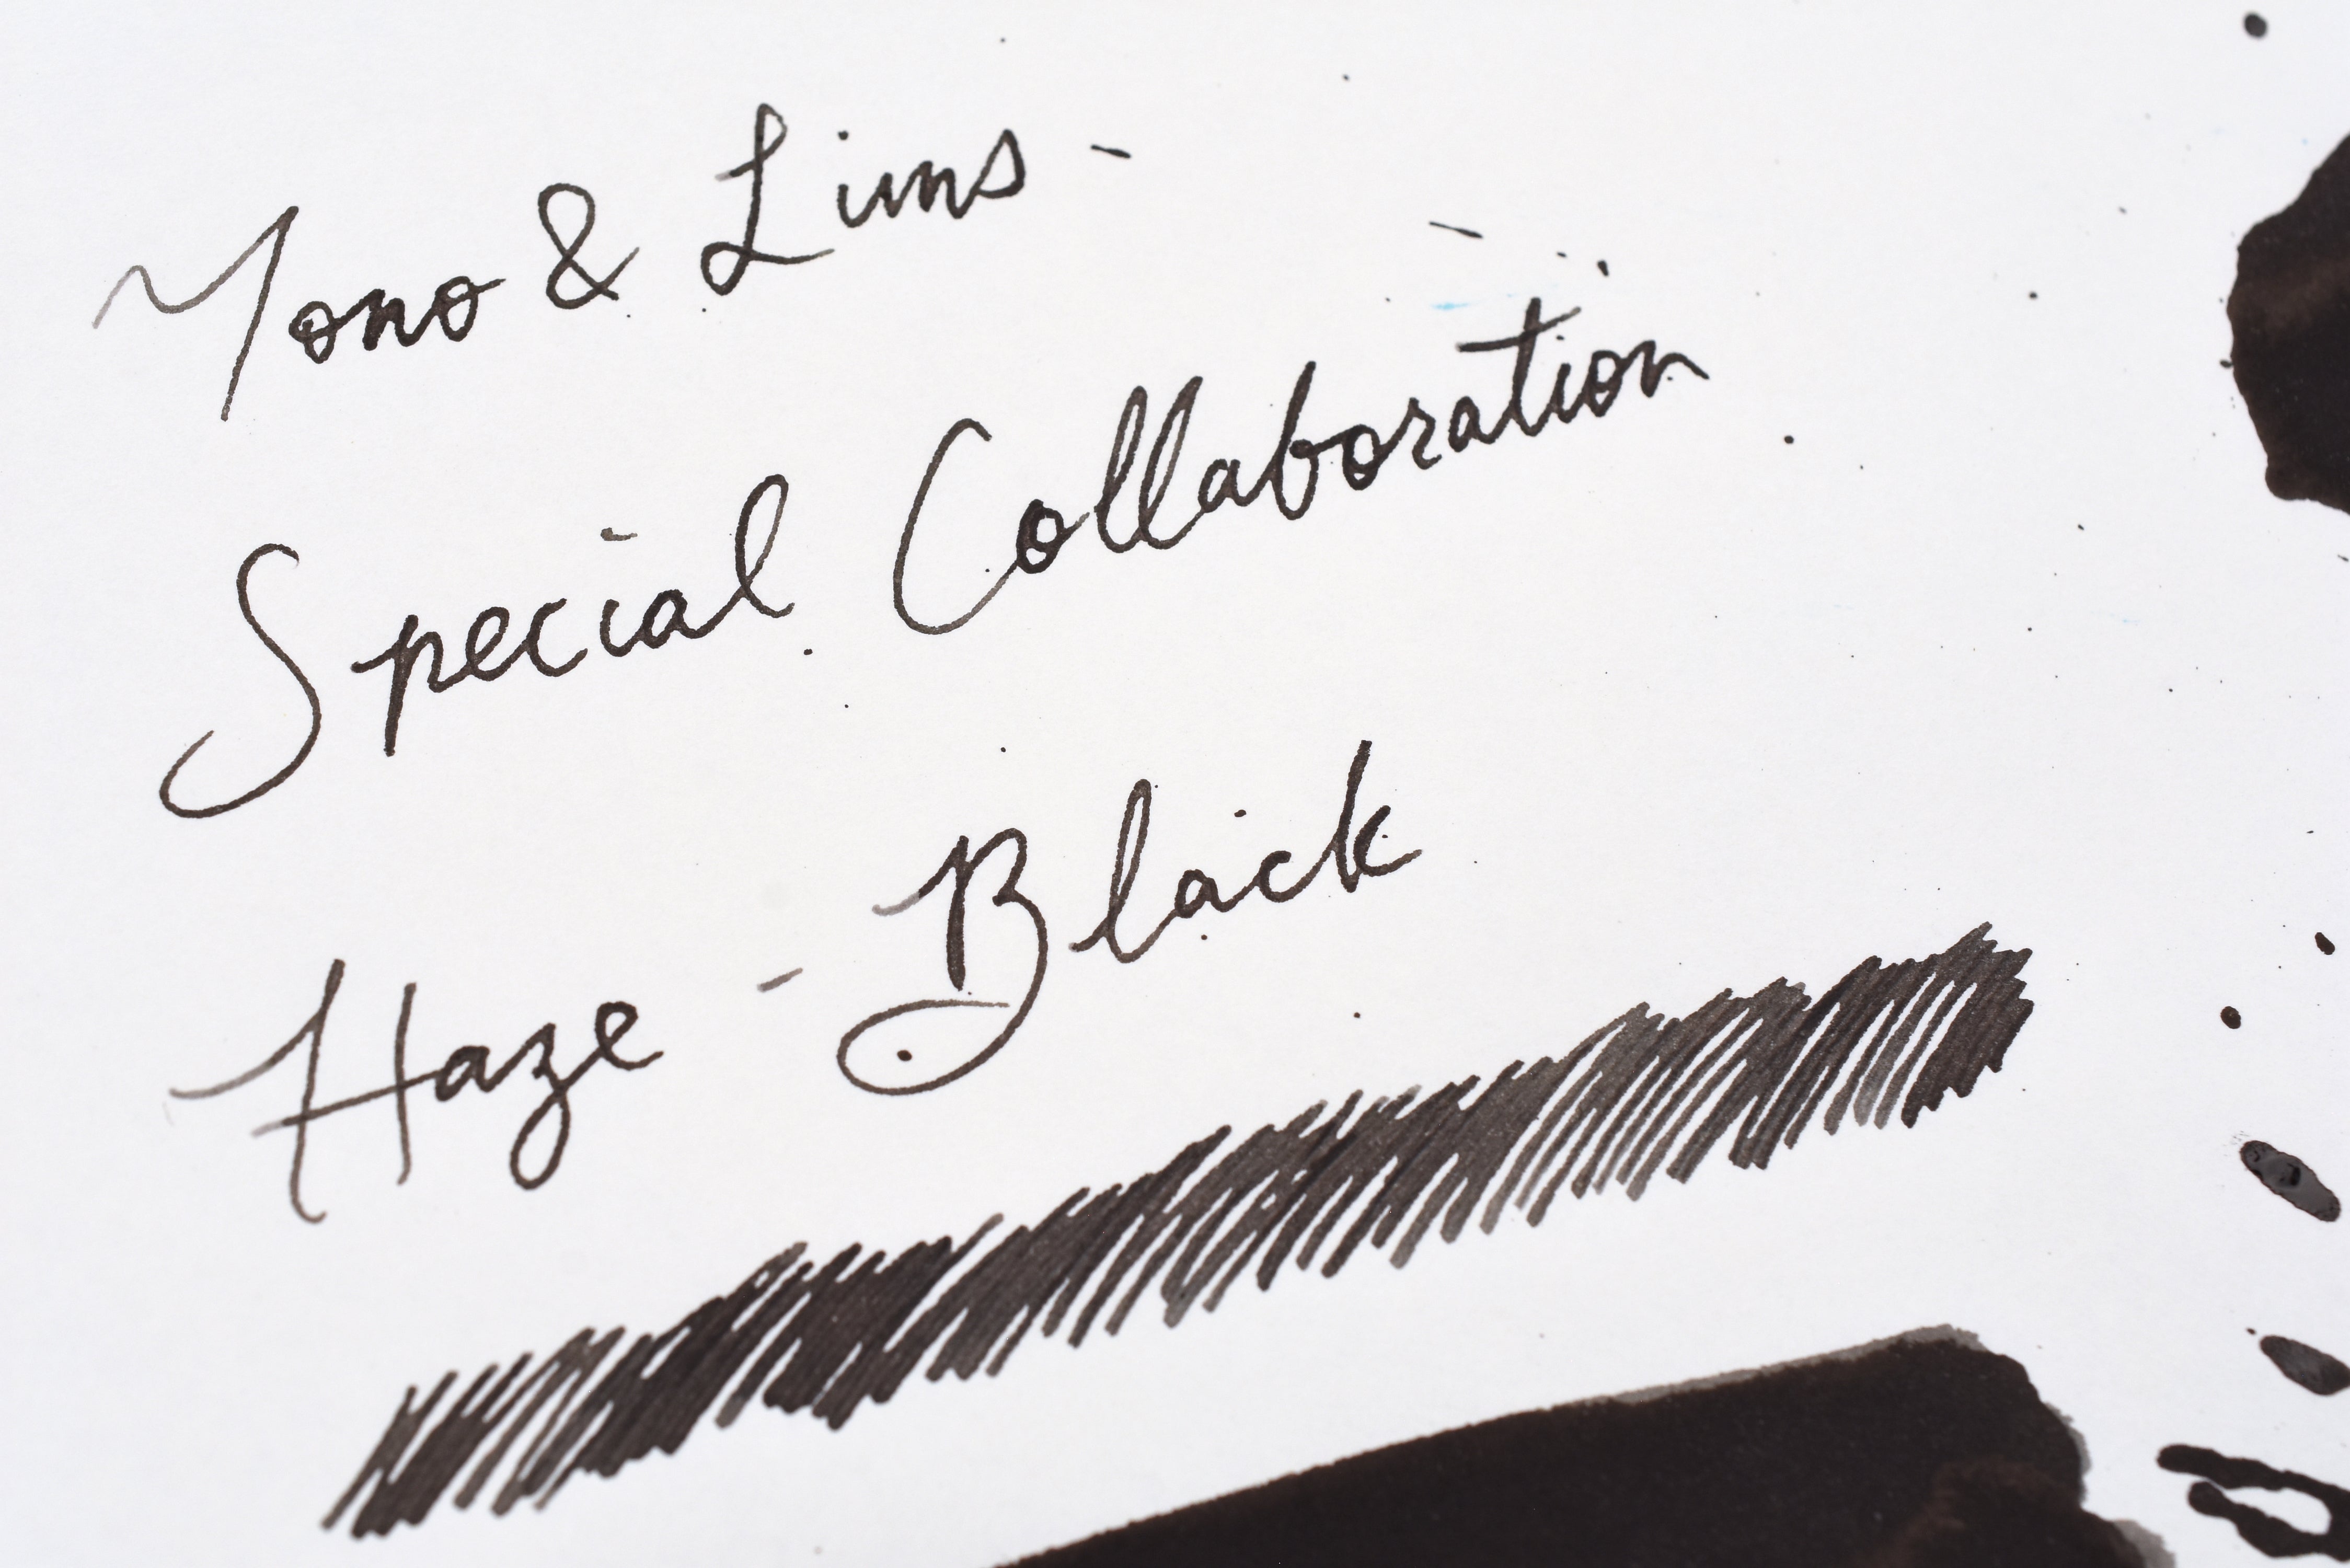 Tono & Lims -
Special Collaboration
Haze - Black